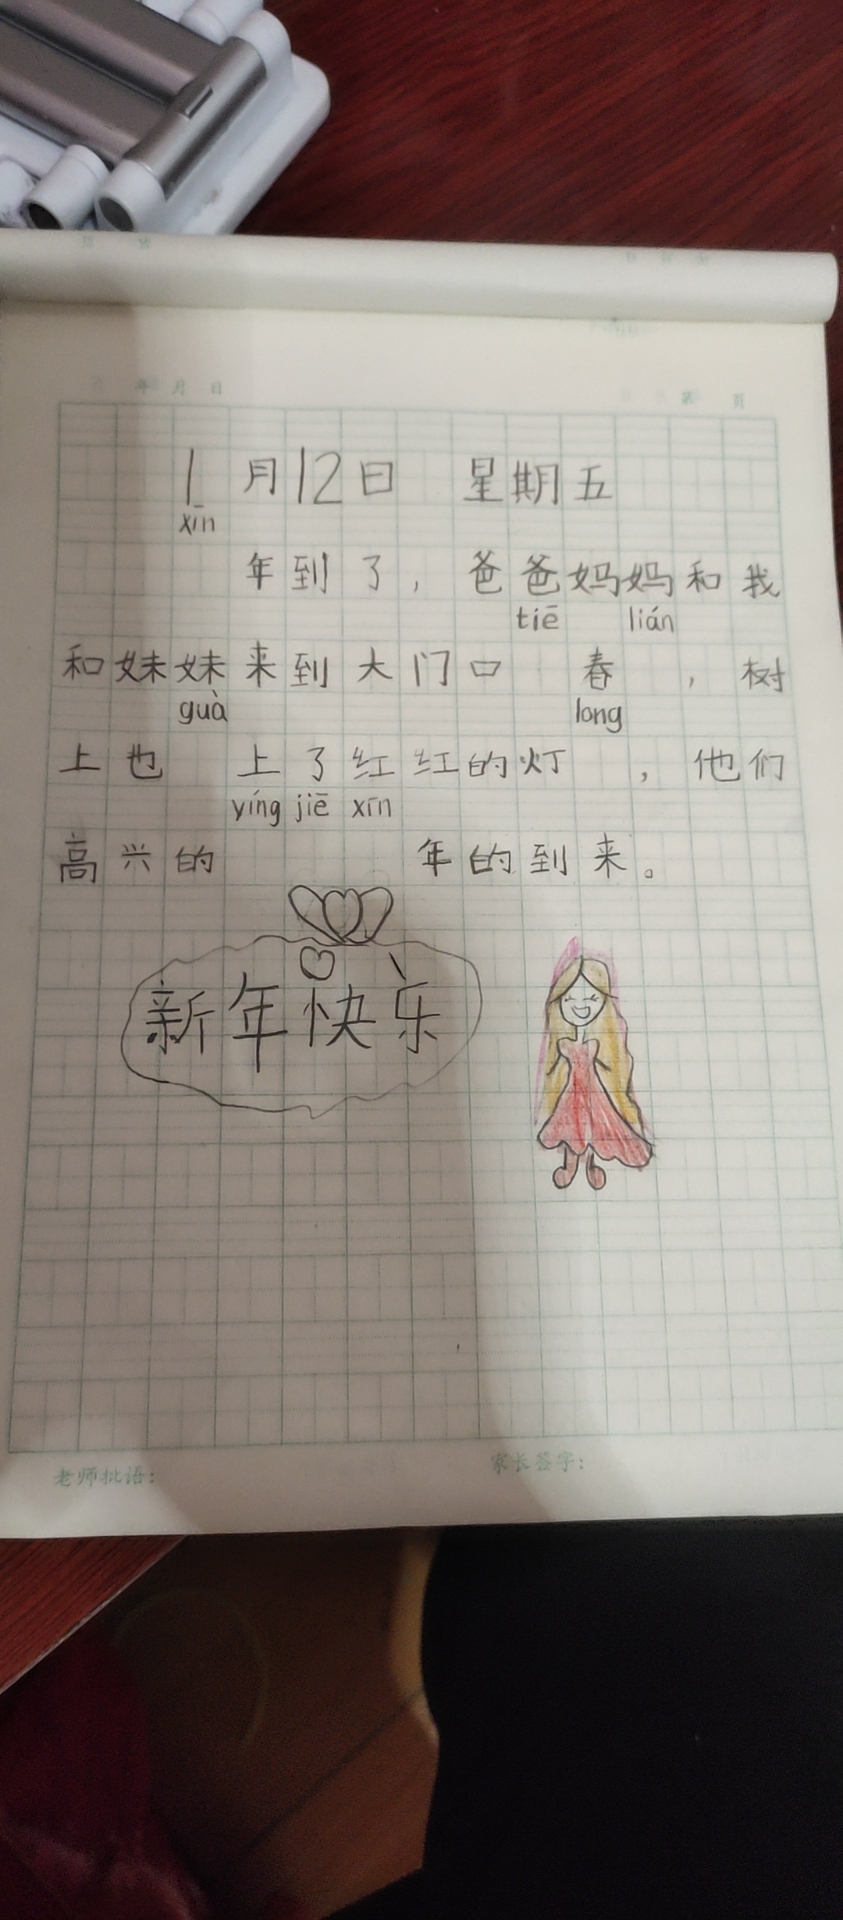 年 月 日 第 页
1月12日 星期五
xīn
年到了，爸爸妈妈和我
tiē lián
和妹妹来到大门口 春 ，树
guà long
上也 上了红红的灯 ，他们
yíng jiē xīn
高兴的 年的到来。
新年快乐
老师批语： 家长签字：